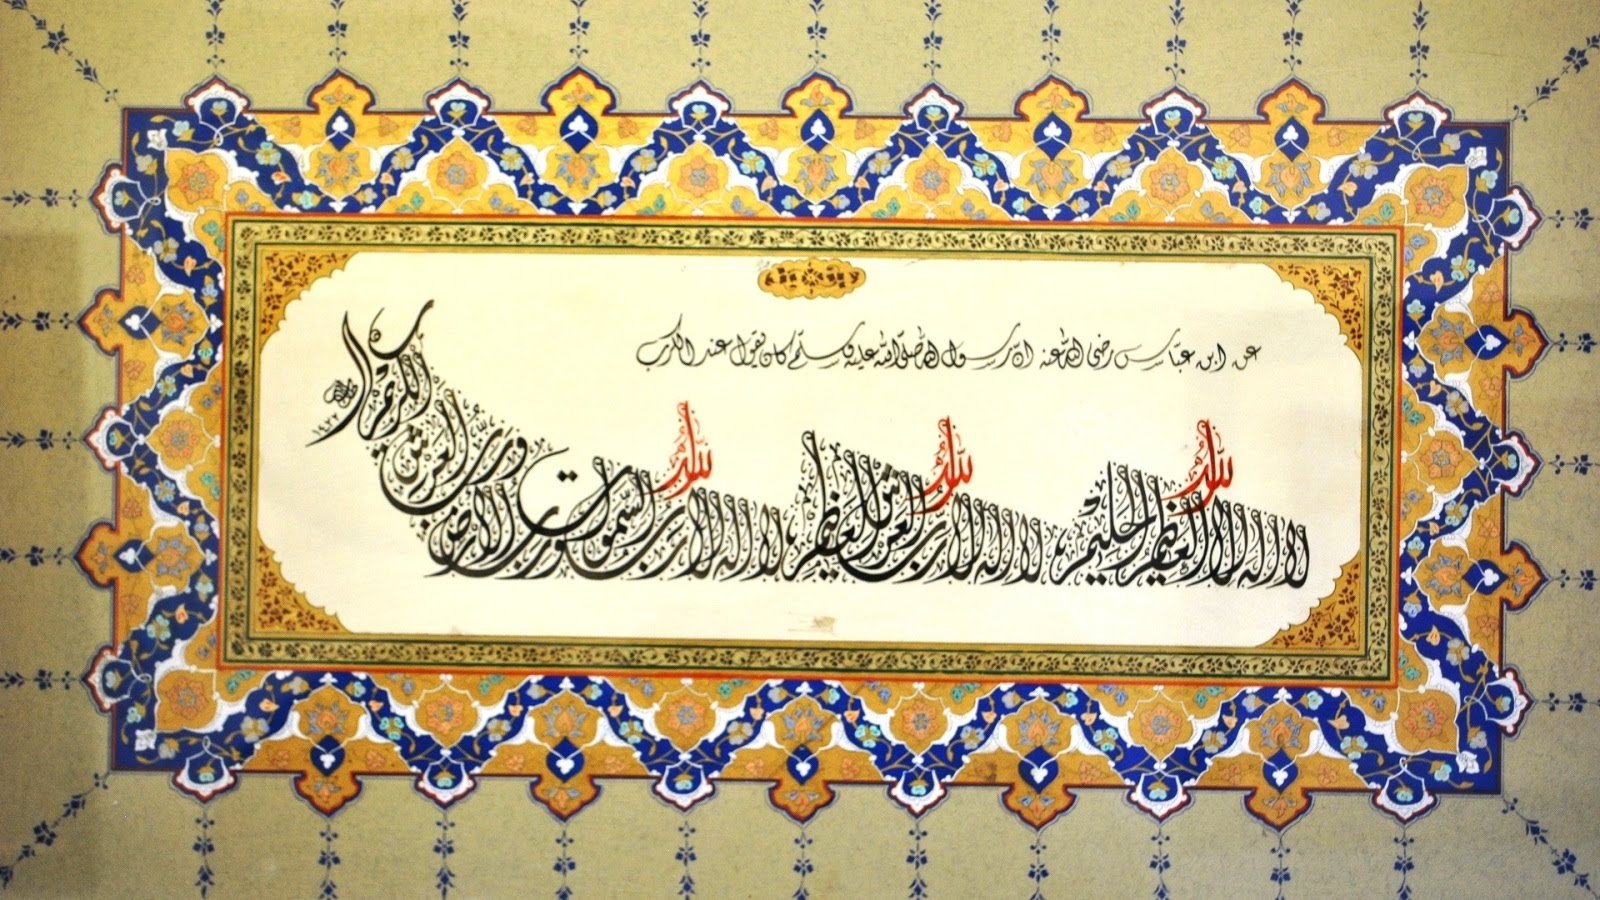 عن ابن عباس رضى الله عنه ان رسول الله صلى الله عليه وسلم كان يقول عند الكرب
لا اله الا الله العظيم الحليم لا اله الا الله رب العرش العظيم لا اله الا الله رب السموات ورب الأرض ورب العرش الكريم
١٤٢٢